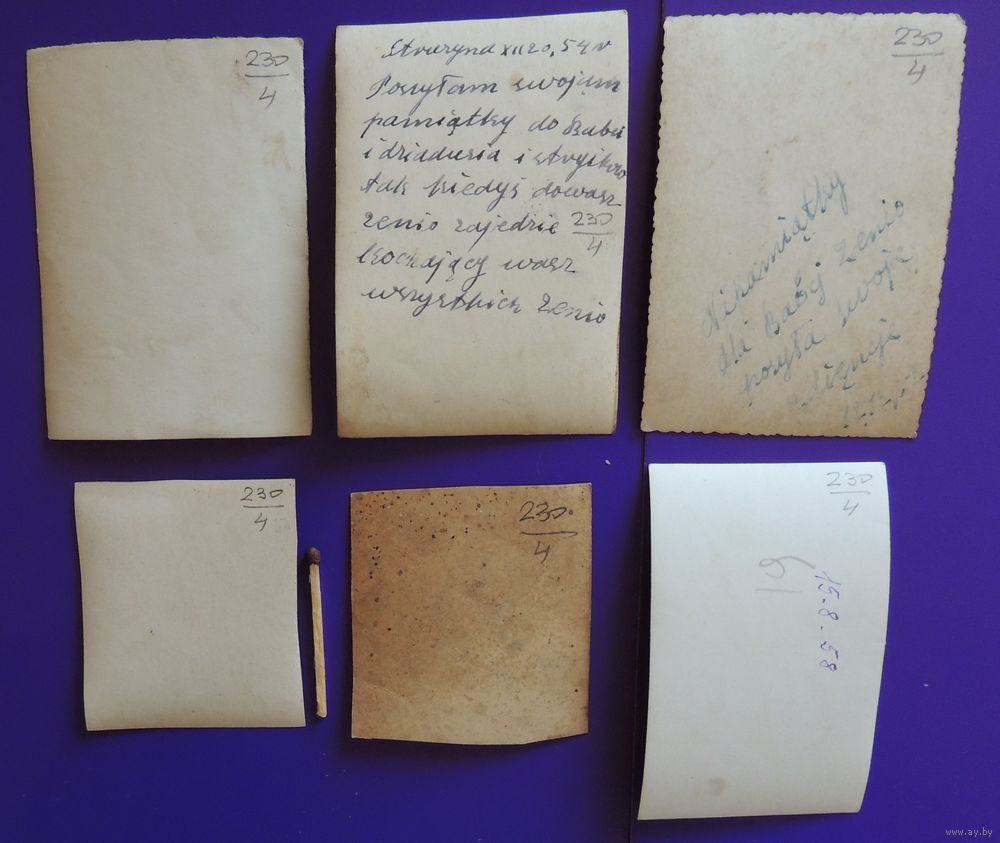 230
4
XII 20, 54 r
Posyłam swojem
pamiątky do Babci
i dziadusia i stryików
tak kiedyś dowasz
zenio zajedzie 230
4
kochający wasz
wszystkich Zenio
230
4
Napamiątky
dla Babcj Zenio
posyła swoje
230
4
230
4
230
4
61
15.8.58
www.ay.by